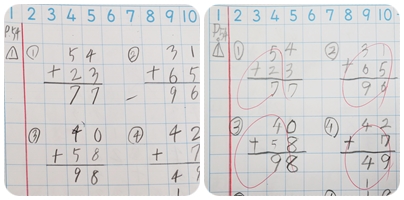 1 2 3 4 5 6 7 8 9 10
P54
① 54
+23
77
② 31
+65
96
③ 40
+58
98
④ 42
+ 7
4
1 2 3 4 5 6 7 8 9 10
① 54
+23
77
② 3
+65
③ 40
+58
98
④ 42
+ 7
49